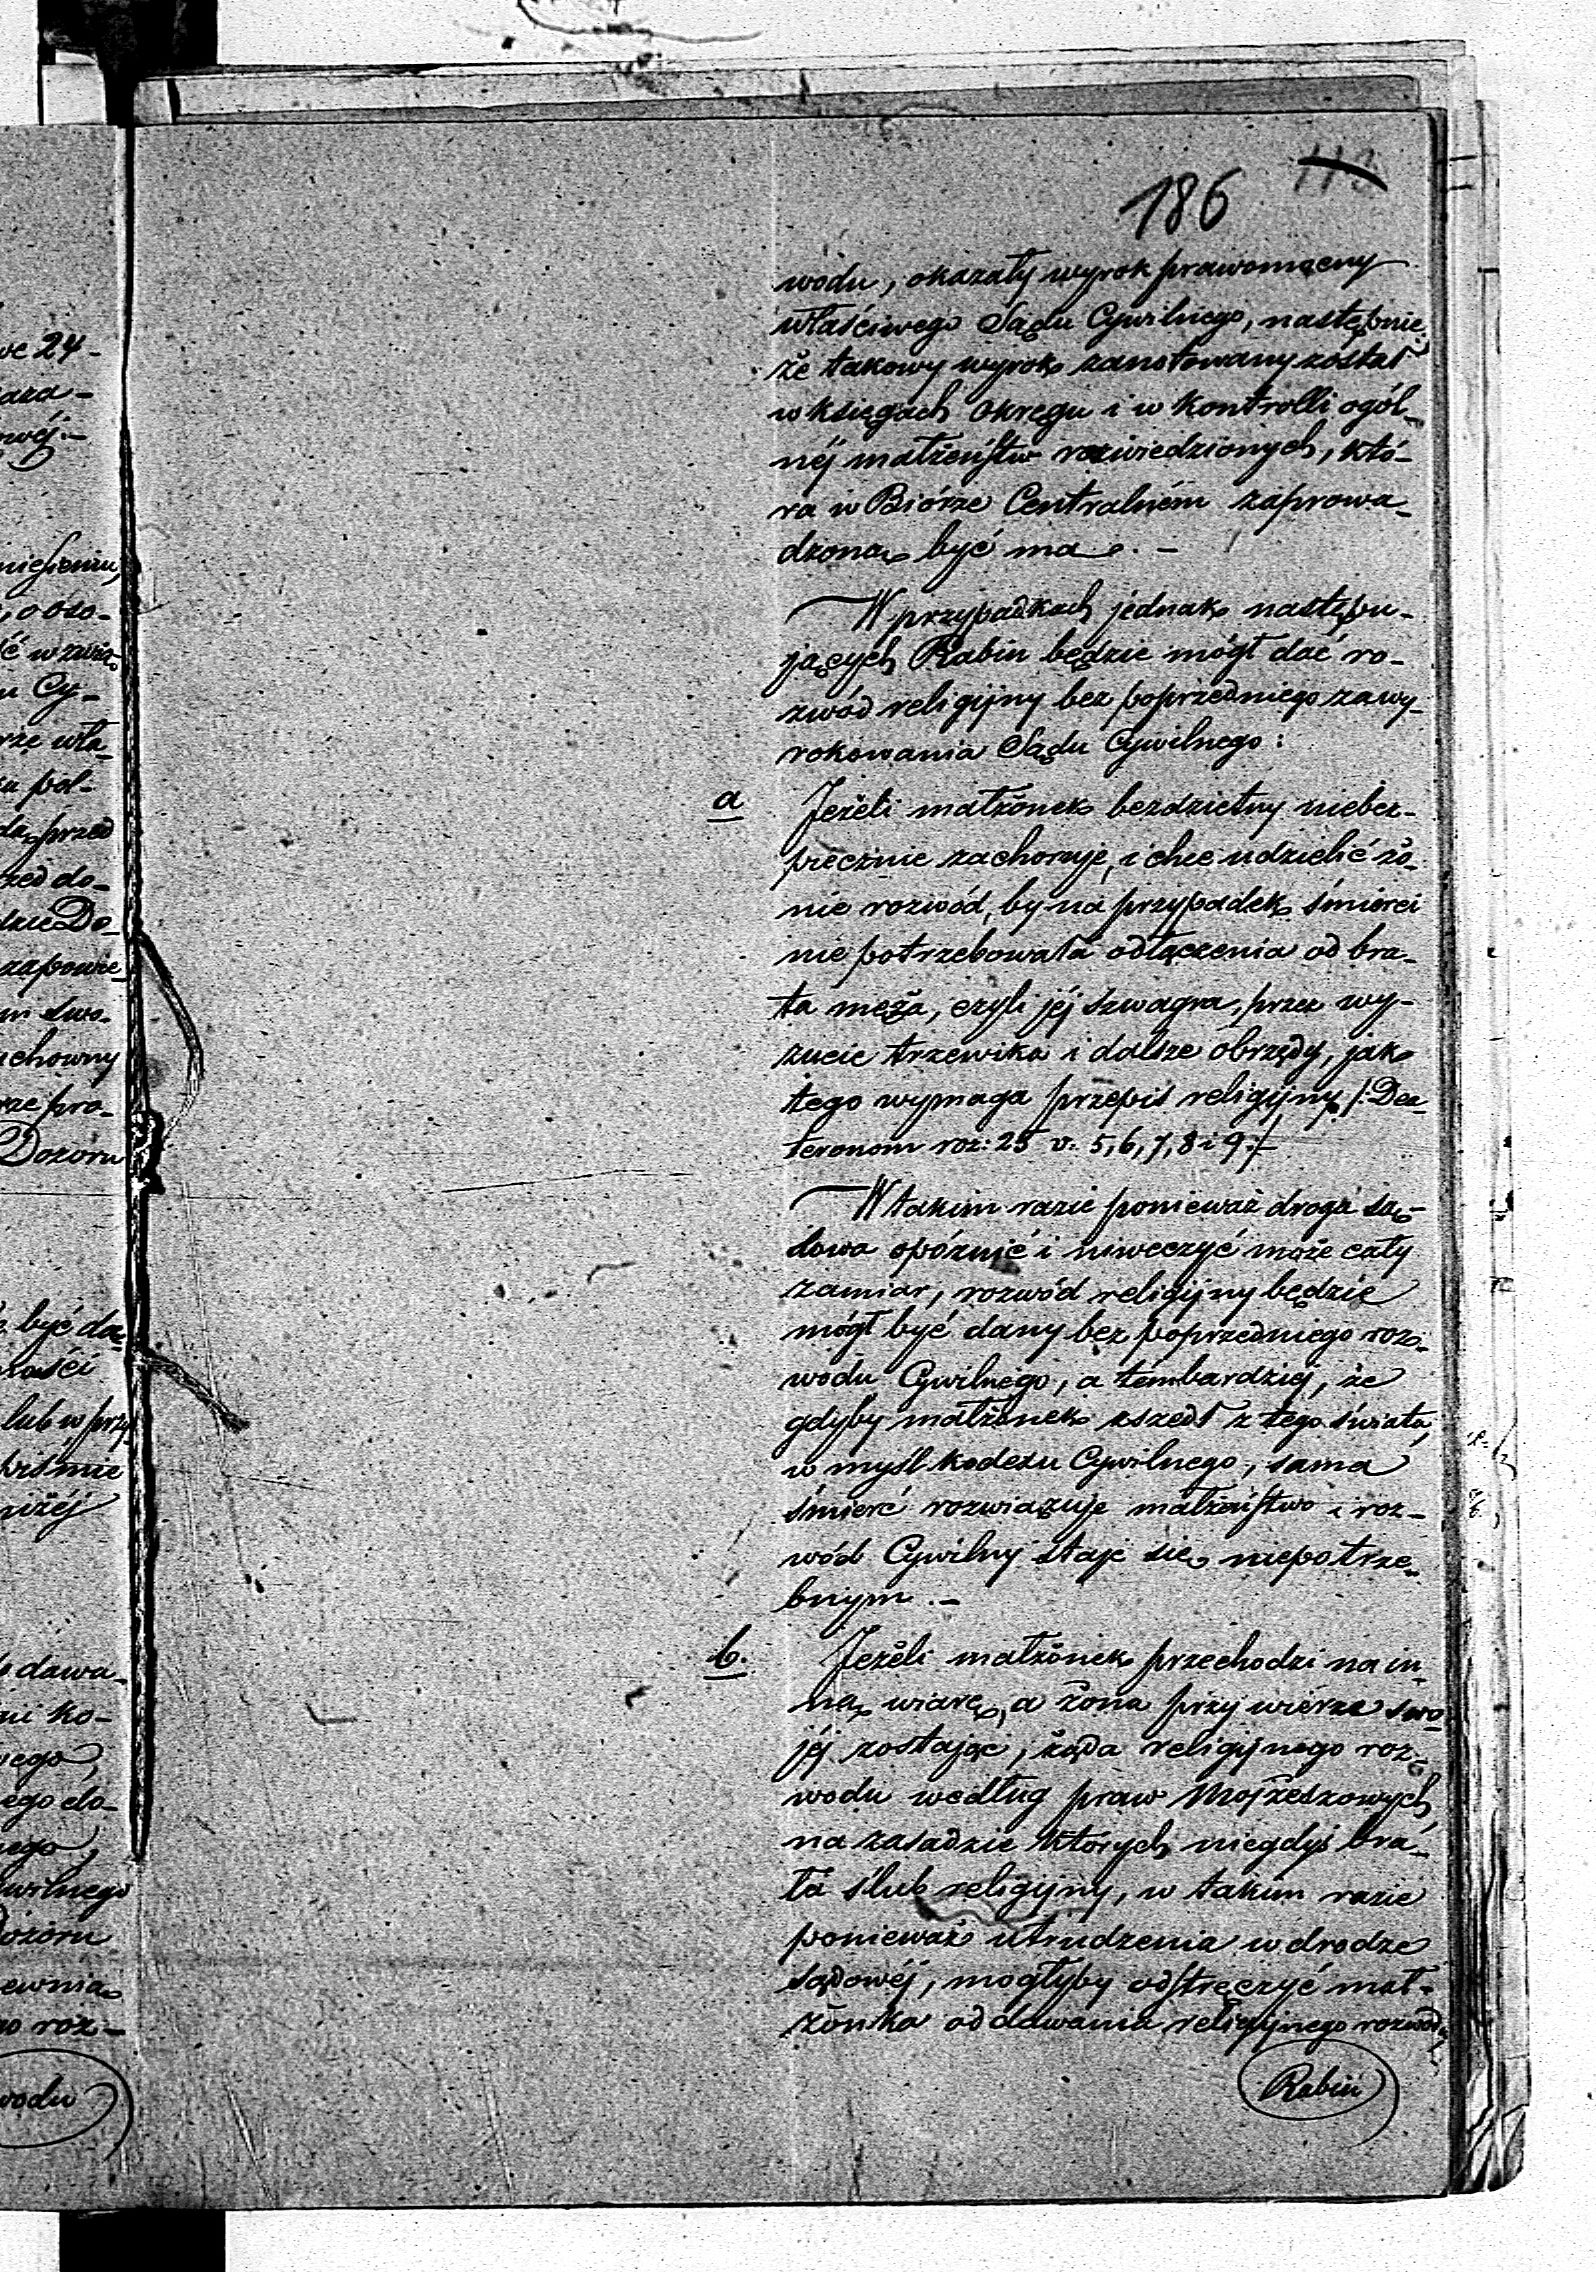 ve 24-
aza-
owéj.-
niesieniu,
, oso-
ć w zwią-
u Cy-
rzę wła-
u pol-
da przed
zed do-
dzie Do-
zapowie-
m swo-
uchowny
rze pro-
Dozoru
być da-
ności
lub w przy-
piśmie
niżéj
dawa-
nii ko-
wego,
ego do-
nego,
wilnego
Dozoru
ewnia
o roz-
wodu
113
186
wodu, okazały wyrok prawomocny
właściwego Sądu Cywilnego, następnie
że takowy wyrok zanotowany został
w księgach okręgu i w kontrolli ogól-
néj małżeństw rozwiedzionych, któ-
ra w Biórze Centralném zaprowa-
dzona być ma. -
W przypadkach jednak następu-
jących Rabin będzie mógł dać ro-
zwód religijny bez poprzedniego zawy-
rokowania Sądu Cywilnego:
a Jeżeli małżonek bezdzietny niebez-
piecznie zachoruje, i chce udzielić żo-
nie rozwód, by na przypadek śmierci
nie potrzebowała odłączenia od bra-
ta męża, czyli jéj szwagra, przez wy-
zucie trzewika i dalsze obrzędy, jak
tego wymaga przepis religijny /: Deu-
teronom roz: 25 v. 5, 6, 7, 8 i 9 :/-
W takim razie ponieważ droga są-
dowa opóźnić i niweczyć może cały
zamiar, rozwód religijny będzie
mógł być dany bez poprzedniego roz-
wodu Cywilnego, a tembardziej, że
gdyby małżonek zszedł z tego świata,
w myśl kodexu Cywilnego, sama
śmierć rozwiązuje małżeństwo i roz-
wód Cywilny staje się niepotrze-
bnym. -
b. Jeżeli małżonek przechodzi na in-
ną wiarę, a żona przy wierze swo-
jéj zostając, żąda religijnego roz-
wodu według praw Mojżeszowych,
na zasadzie których niegdyś bra-
ła ślub religijny, w takim razie
ponieważ utrudzenia w drodze
sądowéj, mogłyby odstręczyć mał-
żonka od dawania religijnego rozwodu,
Rabin